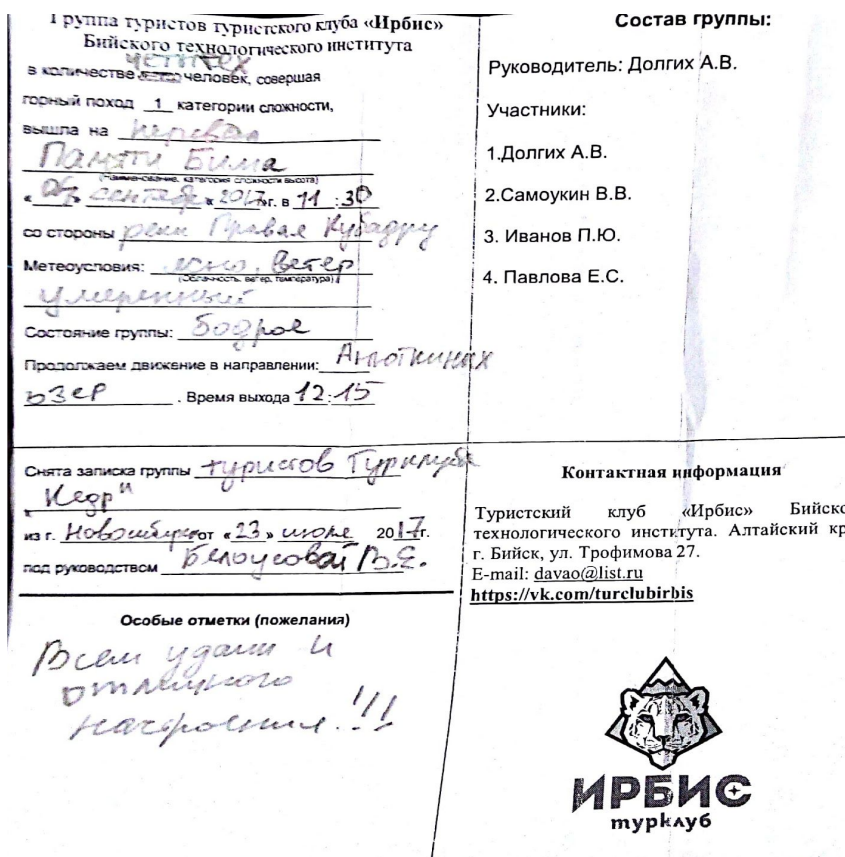 Группа туристов туристского клуба «Ирбис»
Бийского технологического института
четырех
в количестве человек, совершая
горный поход 1 категории сложности,
вышла на перевал
Памяти Бима
(Наименование, категория сложности высота)
« 06 » сентября 2017 г. в 11 : 30
со стороны реки Правая Кубадру
Метеоусловия: ясно, ветер
(Облачность, ветер, температура)
умеренный
Состояние группы: бодрое
Продолжаем движение в направлении:
озер . Время выхода 12:15
Снята записка группы туристов Турклуба
"Кедр"
из г. Новосибирск от « 23 » июля 2017г.
под руководством Белоусовой В.Е.
Особые отметки (пожелания)
Всем удачи и
отличного
настроения!!!
Состав группы:
Руководитель: Долгих А.В.
Участники:
1.Долгих А.В.
2.Самоукин В.В.
3. Иванов П.Ю.
4. Павлова Е.С.
Контактная информация
Туристский клуб «Ирбис» Бийско
технологического института. Алтайский кр
г. Бийск, ул. Трофимова 27.
E-mail: davao@list.ru
https://vk.com/turclubirbis
ИРБИС
турклуб